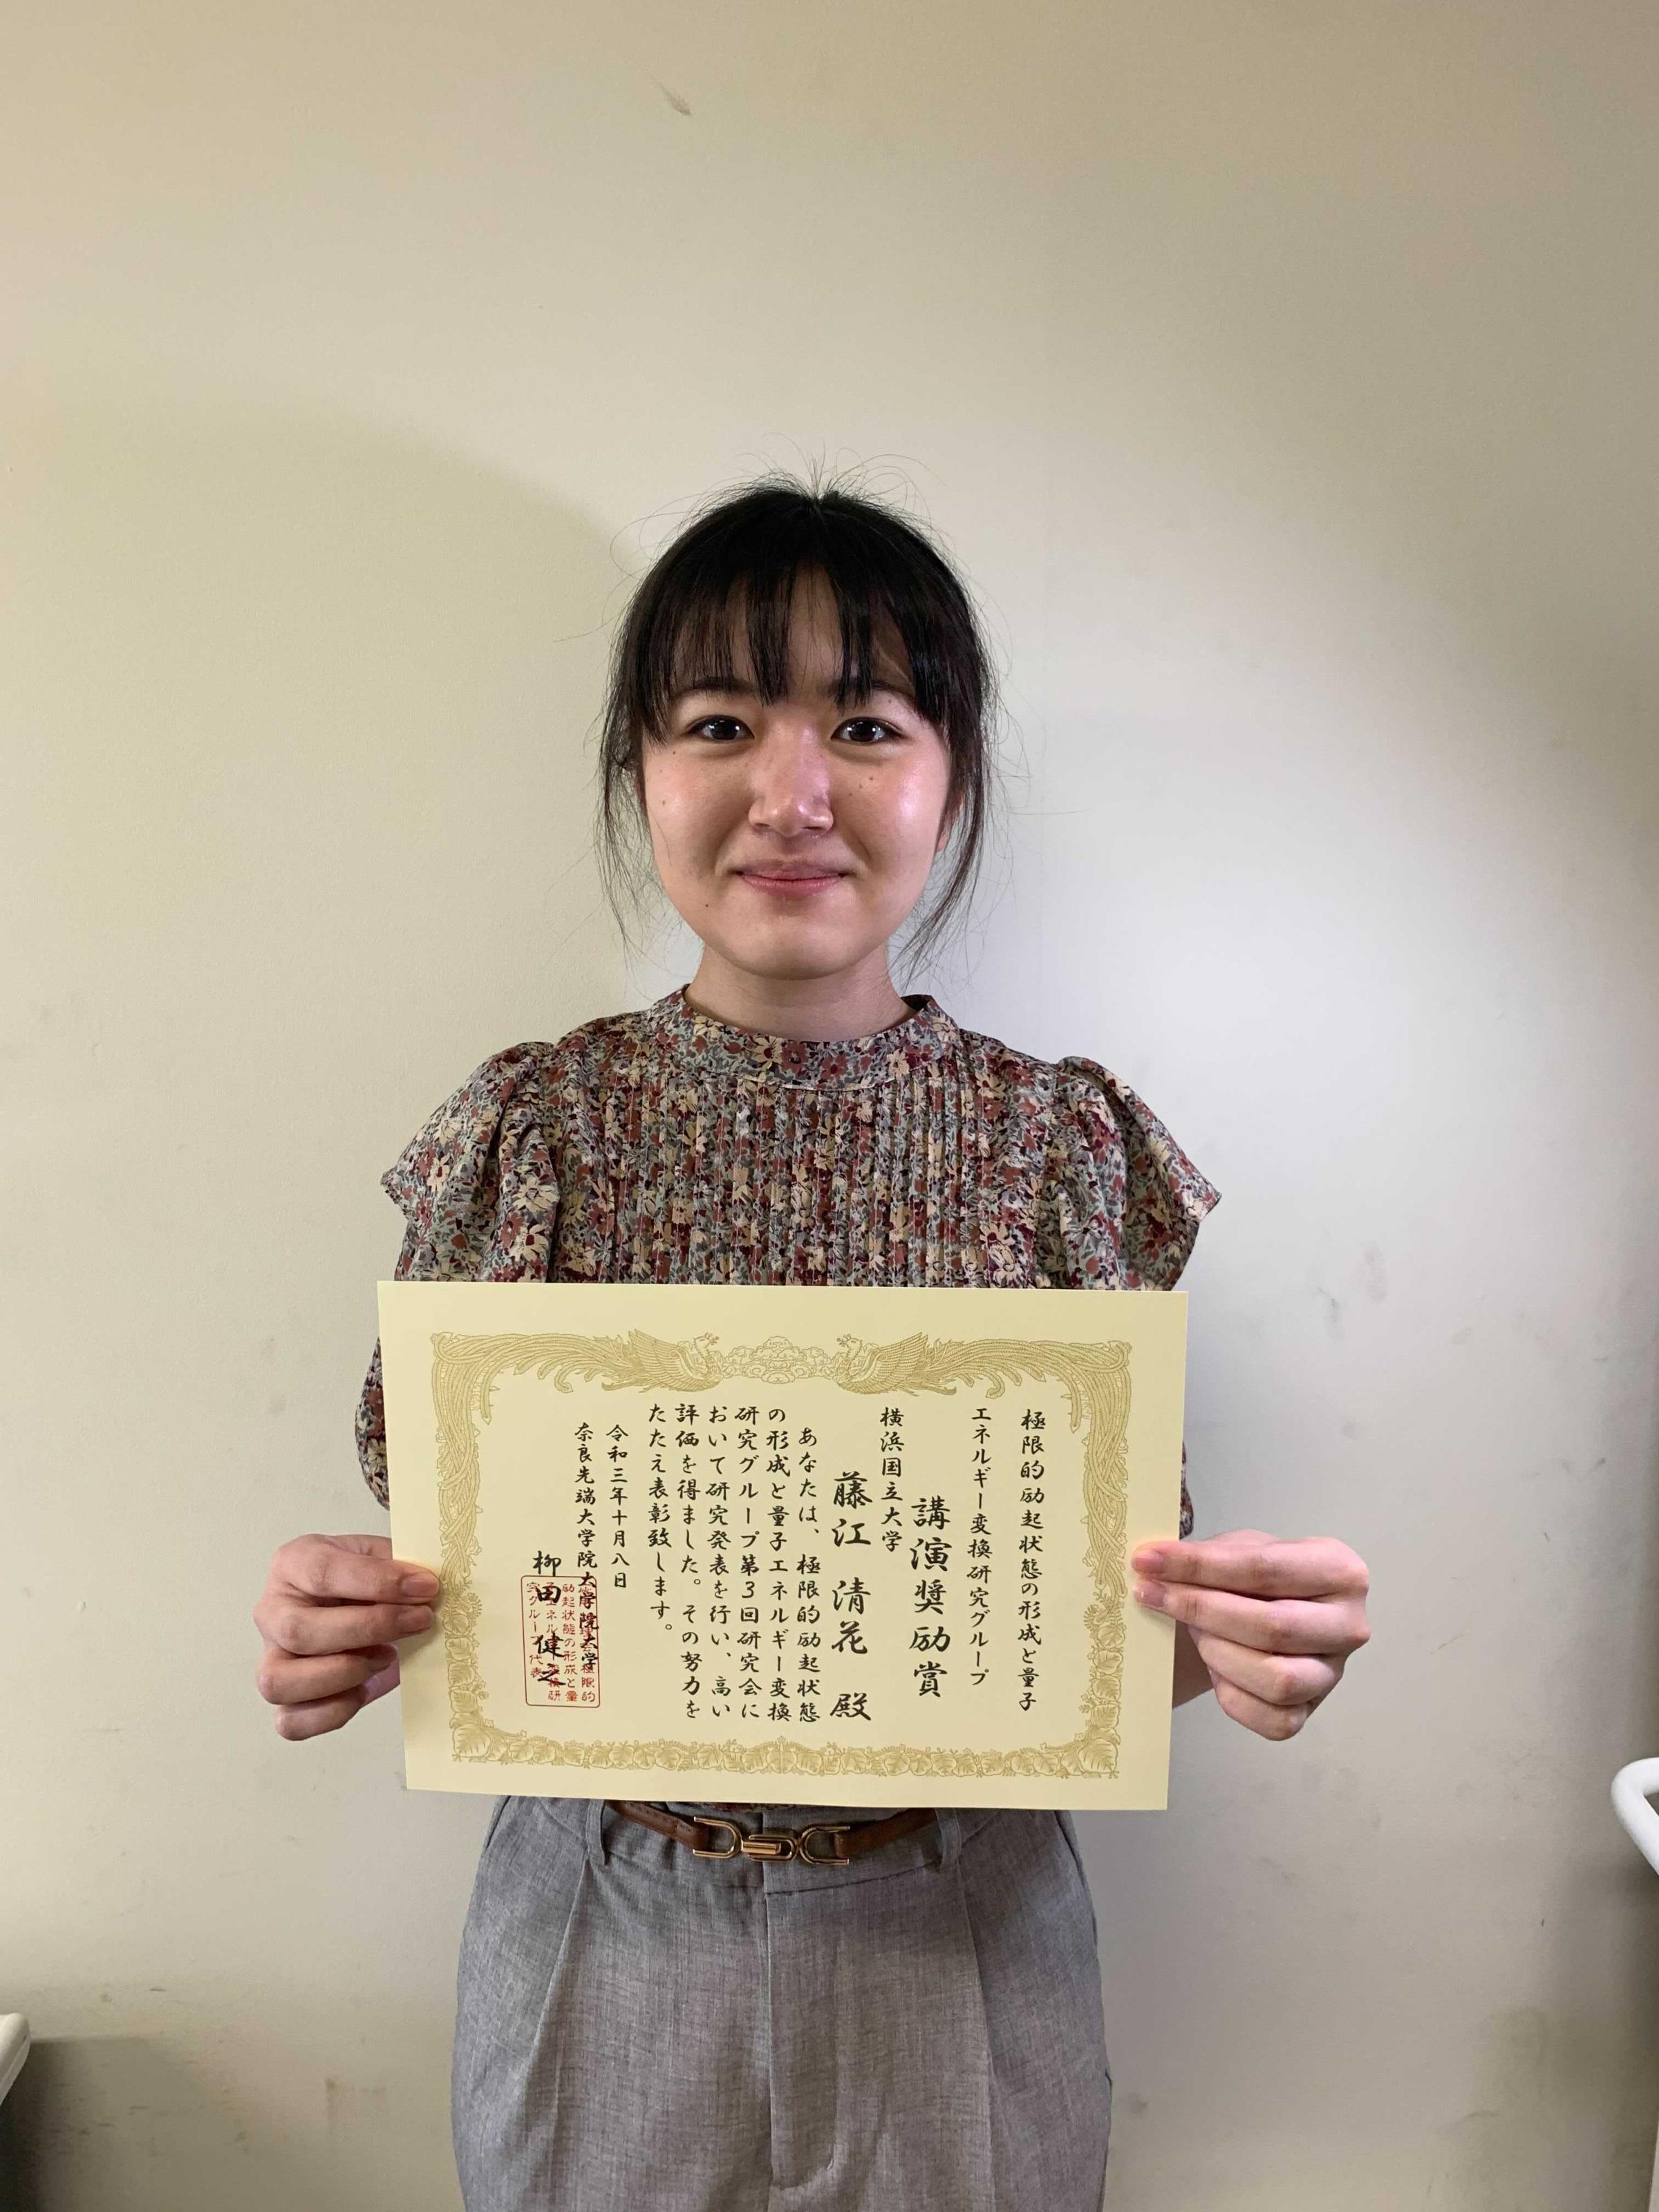 極限的励起状態の形成と量子
エネルギー変換研究グループ
講演奨励賞
横浜国立大学
藤江 清花 殿
あなたは、極限的励起状態
の形成と量子エネルギー変換
研究グループ第3回研究会に
おいて研究発表を行い、高い
評価を得ました。その努力を
たたえ表彰致します。
令和三年十月八日
奈良先端大学院大学院大学
柳田 健之
励起状態の形成と量